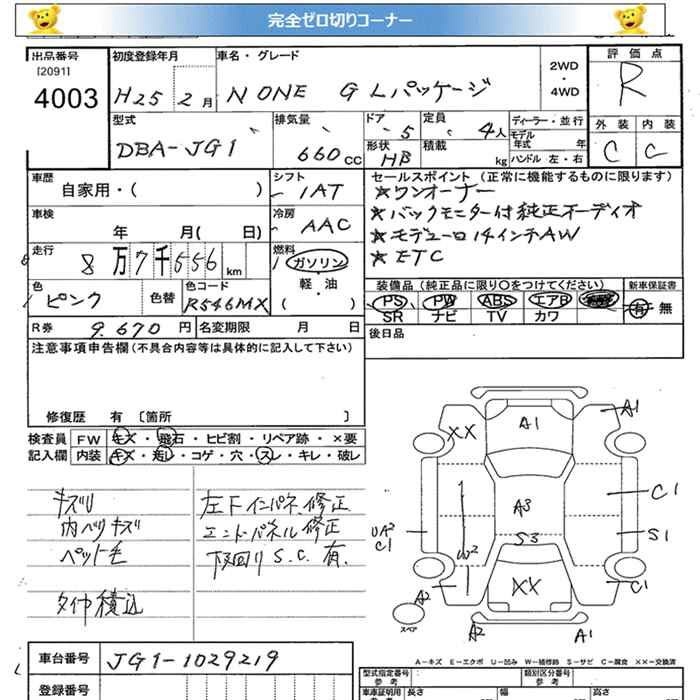 完全ゼロ切りコーナー
出品番号
[2091]
4003
初度登録年月
H25 2月
車名・グレード
N ONE G Lパッケージ
2WD
・
4WD
評価点
R
外装 内装
C C
型式
DBA-JG1
排気量
660cc
ドア
5
形状
HB
定員
4人
積載 kg
ディーラー・並行
モデル
年式 年
ハンドル 左・右
車歴
自家用・( )
シフト
IAT
車検
年 月( 日)
冷房
AAC
走行
8万7千656km
燃料
ガソリン
・
軽・油
( )
色
ピンク
色替
色コード
R546MX
R券 9,670円
名変期限 月 日
セールスポイント(正常に機能するものに限ります)
☆ワンオーナー
☆バックモニター付純正オーディオ
☆モデューロ14インチAW
☆ETC
装備品(純正品に限り〇をつけてください)
新車保証書
PS PW ABS エアB
SR ナビ TV カワ
有・無
後日品
注意事項申告欄(不具合内容等は具体的に記入して下さい)
修復歴 有 [箇所 ]
検査員
記入欄
FW キズ・飛石・ヒビ割・リペア跡・×要
内装 キズ・汚レ・コゲ・穴・スレ・キレ・破レ
キズU
内ヘリキズ
ペット毛
タイヤ積込
左Fインパネ.修正
エンドパネル修正
下回りS.C.有.
A1
A1
XX
A3
C1
UA2
C1
W2
S3
S1
XX
A2
C1
スペア
A2
A1
A-キズ E-エクボ U-凹み W-補修跡 S-サビ C-腐食 ××-交換済
車台番号
JG1-1029219
登録番号
型式指定番号
参考
類別区分番号
参考
車庫証明用
参考
長さ
幅
高さ